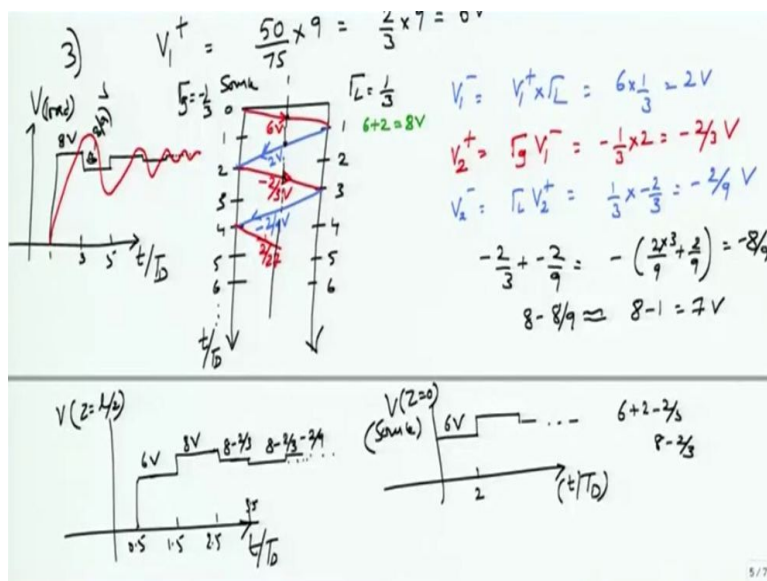 3) V₁⁺ = 50/75 × 9 = 2/3 × 9 = 6V
V(load)
8V
1 3 5 t/T_D
Γg = -1/3
Γ_L = 1/3
0
1 1
2 2
3 3
4 4
5 5
6 6
6V
2V
-2/3 V
-2/9 V
2/27
t/T_D
6+2 = 8V
V₁⁻ = V₁⁺ × Γ_L = 6 × 1/3 = 2V
V₂⁺ = Γg V₁⁻ = -1/3 × 2 = -2/3 V
V₂⁻ = Γ_L V₂⁺ = 1/3 × -2/3 = -2/9 V
-2/3 + -2/9 = -(2×3/9 + 2/9) = -8/9
8 - 8/9 ≈ 8 - 1 = 7V
V(Z=l/2)
6V 8V 8-2/3 8-2/3-2/9
0.5 1.5 2.5 3.5 t/T_D
V(Z=0)
6V ...
2 (t/T_D)
6+2-2/3
8-2/3
5/7